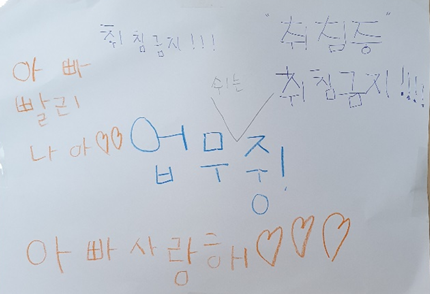 취침금지!!!
"취침중"
취침금지!!!!
아빠
빨리
나아♡♡
쉬는
업무중!
아빠사랑해♡♡♡